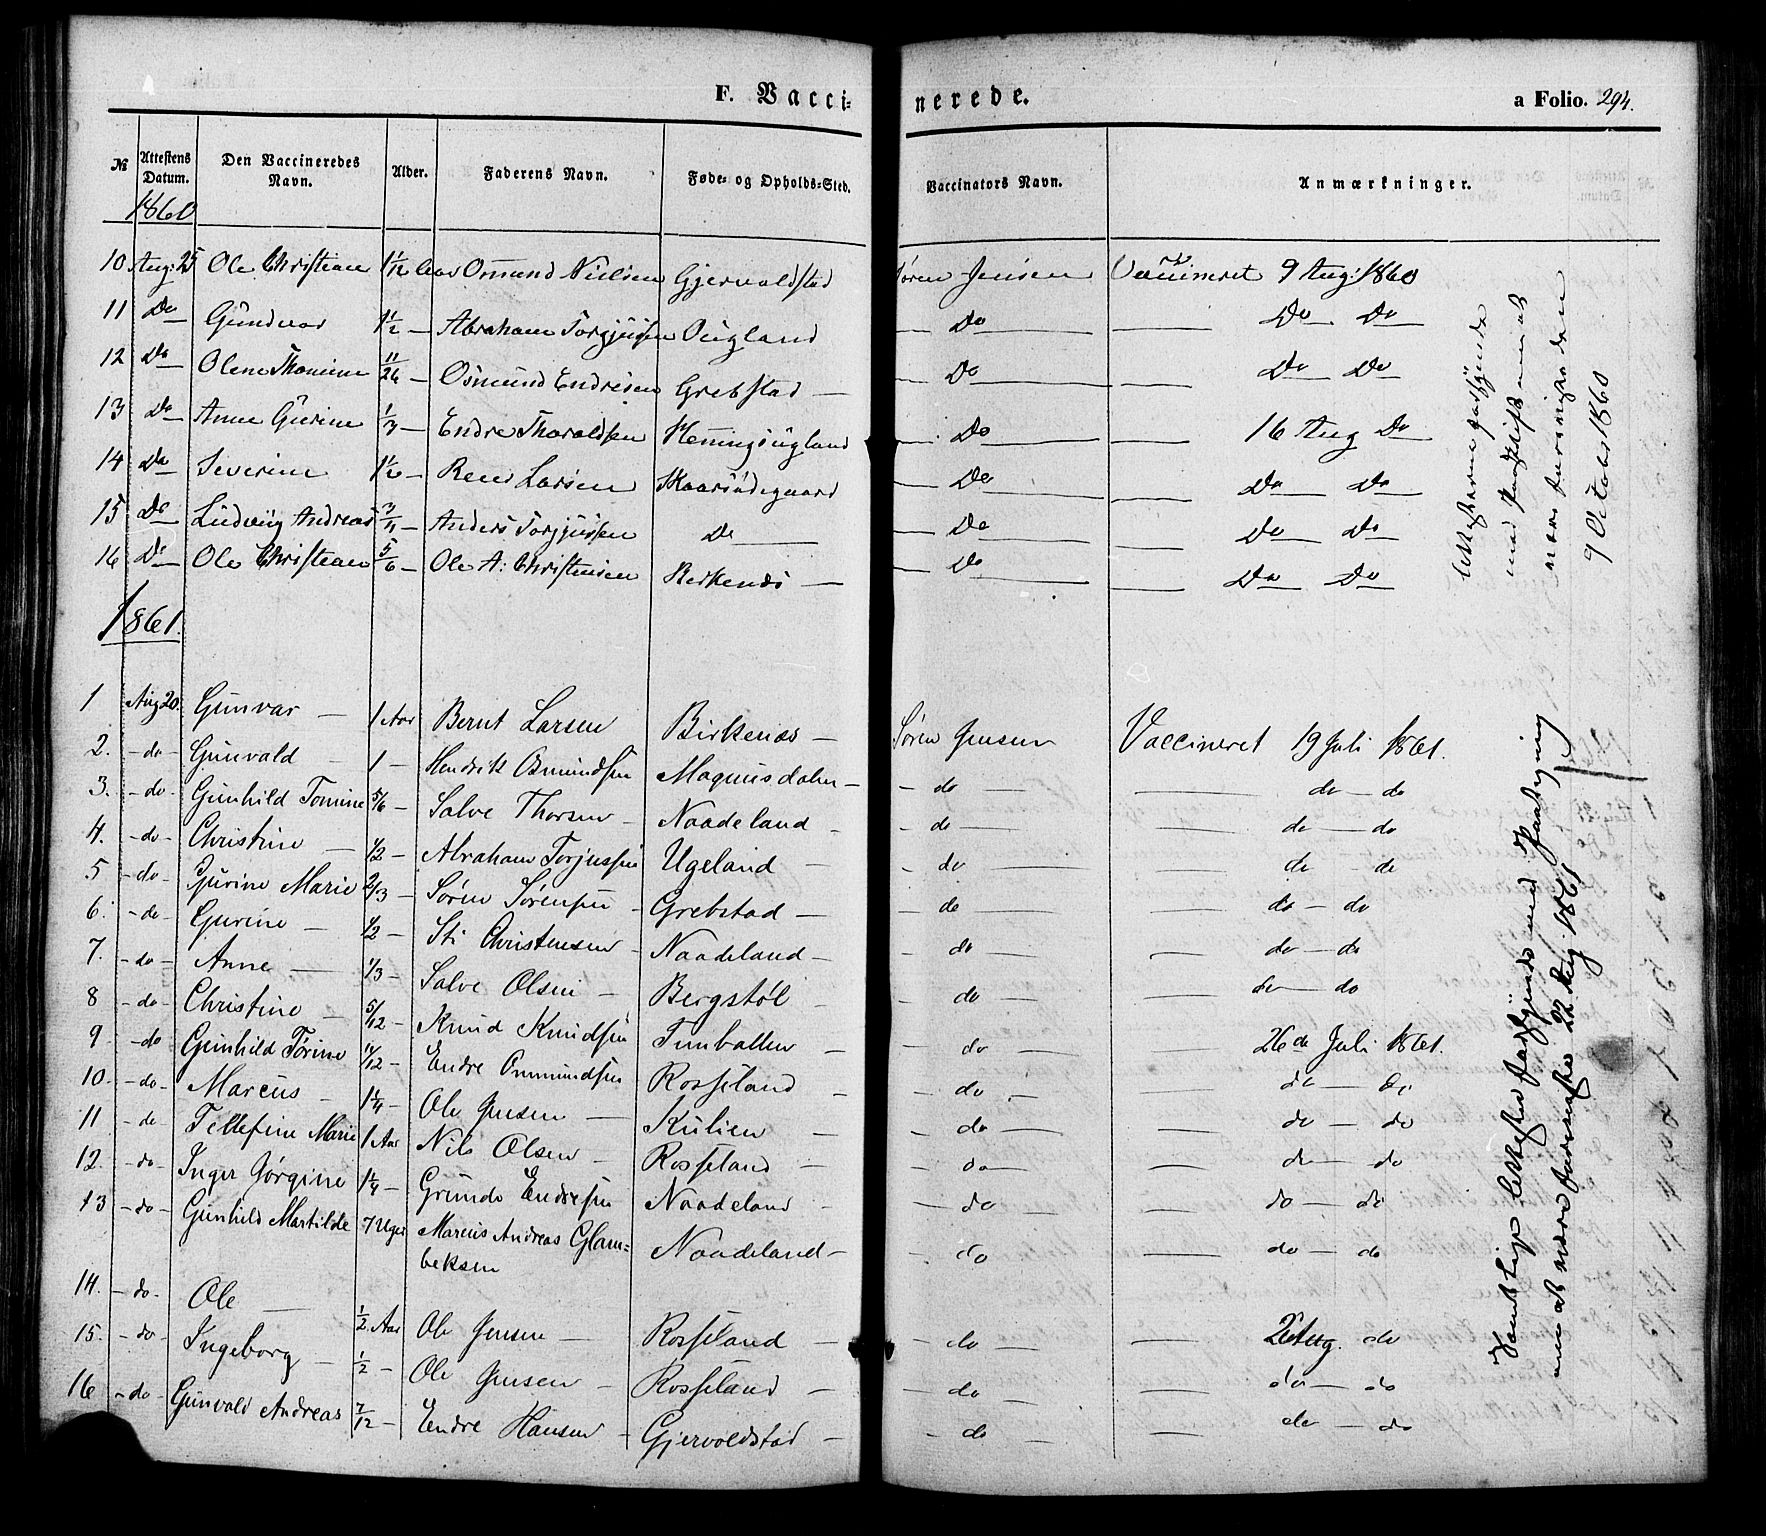 F. Vaccinerede.
a Folio. 294.
№ | Attestens Datum. | Den Vaccineredes Navn. | Alder. | Faderens Navn. | Føde- og Opholds-Sted. | Vaccinators Navn. | Anmærkninger.
1860
10 | Aug: 25 | Ole Christian | 1 1/12 Aar | Osmund Nielsen | Gjervoldstad | Søren Jensen | Vaccineret 9 Aug: 1860
11 | Do | Gundvor | 1 1/2 — | Abraham Torgjussen | Øugland | — Do — | — Do Do
12 | Do | Olene Thomine | 11/26 — | Osmund Endresen | Grebstad — | — Do — | — Do Do
13 | Do | Anne Gurine | 1/3 — | Endre Tharaldsen | Henningsugland | — Do — | — 16 Aug Do
14 | Do | Severine | — | Larsen | Skaarsødegaard | — Do — | — Do Do
15 | Do | Ludvig Andreas | — | Anders Torgjussen | Do — | — Do — | — Do Do
16 | Do | Ole Christian | 5/6 — | Ole A: Christensen | Berkenæs — | — Do — | — Do Do
9 October 1860
1861.
1 | Aug 20. | Gunvor — | 1 Aar | Bernt Larsen | Birkenæs — | Søren Jensen | Vaccineret 19 Juli 1861.
2. | - do - | Gunvald — | 1 — | Hendrik Osmundsen | Magnusdalen — | - do — | — do — do
3. | - do - | Gunhild Tomine | 5/6 — | Salve Thorsen — | Naadeland — | - do — | — do — do
4. | - do - | Christine — | 1/2 — | Abraham Torjussen | Ugeland — | do — | — do — do
5 | - do - | Gurine Marie | 2/3 — | Søren Sørensen — | Grebstad — | - do — | — do — do
6. | - do - | Gurine — | 1/2 — | Sti Christensen | Naadeland — | do — | — do — do
7. | - do - | Anne — | 1/3 — | Salve Olsen — | Bergstøl — | - do — | — do — do
8 | - do - | Christine — | 5/12 — | Knud Knudsen | Tunballen — | - do — | — 26de Juli 1861.
9. | - do | Gunhild Törine | 11/12 — | Endre Ommundsen | Rosseland — | - do — | — do — do
10. | - do - | Marcus — | 1 1/4 — | Ole Jensen — | Kulien — | - do — | — do — do
11. | - do - | Tellefine Marie | 1 Aar | Nils Olsen — | Rosseland — | - do — | — do — do
12. | - do - | Inger Jørgine | 1 1/4 — | Grunde Endresen | Naadeland — | - do — | — do — do
13 | - do - | Gunhild Martilde | 7 Uger | Marcus Andreas Glam=
beksen | Naadeland — | - do — | — do — do
14. | - do - | Ole — | 1/2 Aar | Ole Jensen — | Rosseland — | - do — | — 2 Aug. do
15. | - do | Ingeborg — | 1/2 — | Ole Jensen — | Rosseland — | - do — | — do — do
16 | - do - | Gunvald Andreas | 7/12 — | Endre Hansen — | Gjervoldstad — | - do — | — do — do
Samtlige Attester forsynede med Paategning
om at være 22 Aug: 1861